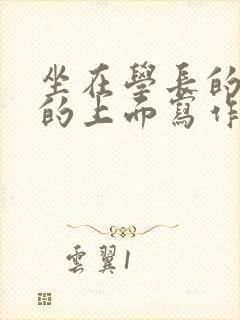 坐在學長的
的上面寫作
雲翼1